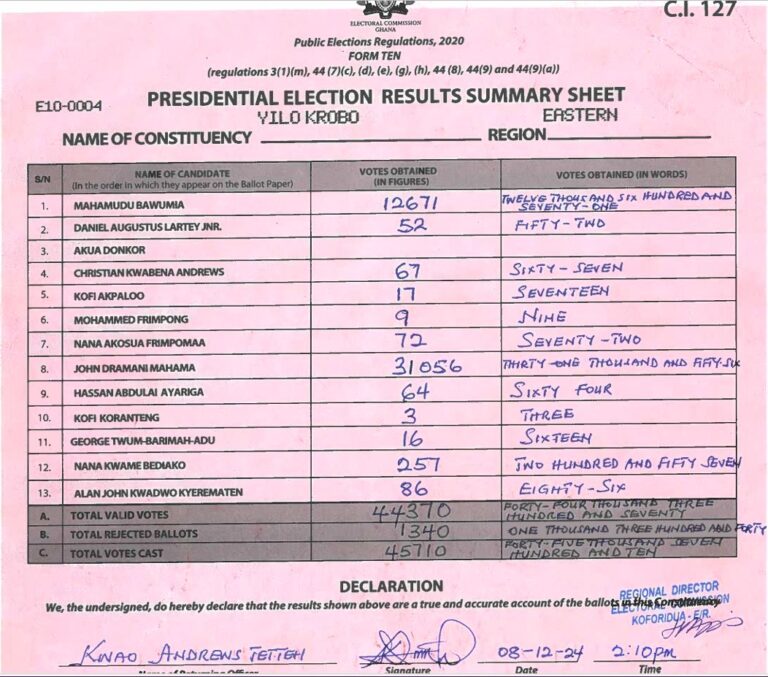 C.I. 127
ELECTORAL COMMISSION
GHANA
Public Elections Regulations, 2020
FORM TEN
(regulations 3(1)(m), 44 (7)(c), (d), (e), (g), (h), 44 (8), 44(9) and 44(9)(a))
E10-0004
PRESIDENTIAL ELECTION RESULTS SUMMARY SHEET
NAME OF CONSTITUENCY YILO KROBO REGION EASTERN
S/N NAME OF CANDIDATE (In the order in which they appear on the Ballot Paper) VOTES OBTAINED (IN FIGURES) VOTES OBTAINED (IN WORDS)
1. MAHAMUDU BAWUMIA 12671 TWELVE THOUSAND SIX HUNDRED AND SEVENTY-ONE
2. DANIEL AUGUSTUS LARTEY JNR. 52 FIFTY-TWO
3. AKUA DONKOR
4. CHRISTIAN KWABENA ANDREWS 67 SIXTY-SEVEN
5. KOFI AKPALOO 17 SEVENTEEN
6. MOHAMMED FRIMPONG 9 NINE
7. NANA AKOSUA FRIMPOMAA 72 SEVENTY-TWO
8. JOHN DRAMANI MAHAMA 31056 THIRTY-ONE THOUSAND AND FIFTY-SIX
9. HASSAN ABDULAI AYARIGA 64 SIXTY FOUR
10. KOFI KORANTENG 3 THREE
11. GEORGE TWUM-BARIMAH-ADU 16 SIXTEEN
12. NANA KWAME BEDIAKO 257 TWO HUNDRED AND FIFTY SEVEN
13. ALAN JOHN KWADWO KYEREMATEN 86 EIGHTY-SIX
A. TOTAL VALID VOTES 44370 FORTY-FOUR THOUSAND THREE HUNDRED AND SEVENTY
B. TOTAL REJECTED BALLOTS 1340 ONE THOUSAND THREE HUNDRED AND FORTY
C. TOTAL VOTES CAST 45710 FORTY-FIVE THOUSAND SEVEN HUNDRED AND TEN
DECLARATION
We, the undersigned, do hereby declare that the results shown above are a true and accurate account of the ballots in this Constituency
REGIONAL DIRECTOR
ELECTORAL COMMISSION
KOFORIDUA - E/R.
KWAO ANDREWS TETTEH 08-12-24 2:10pm
Name of Returning Officer Signature Date Time